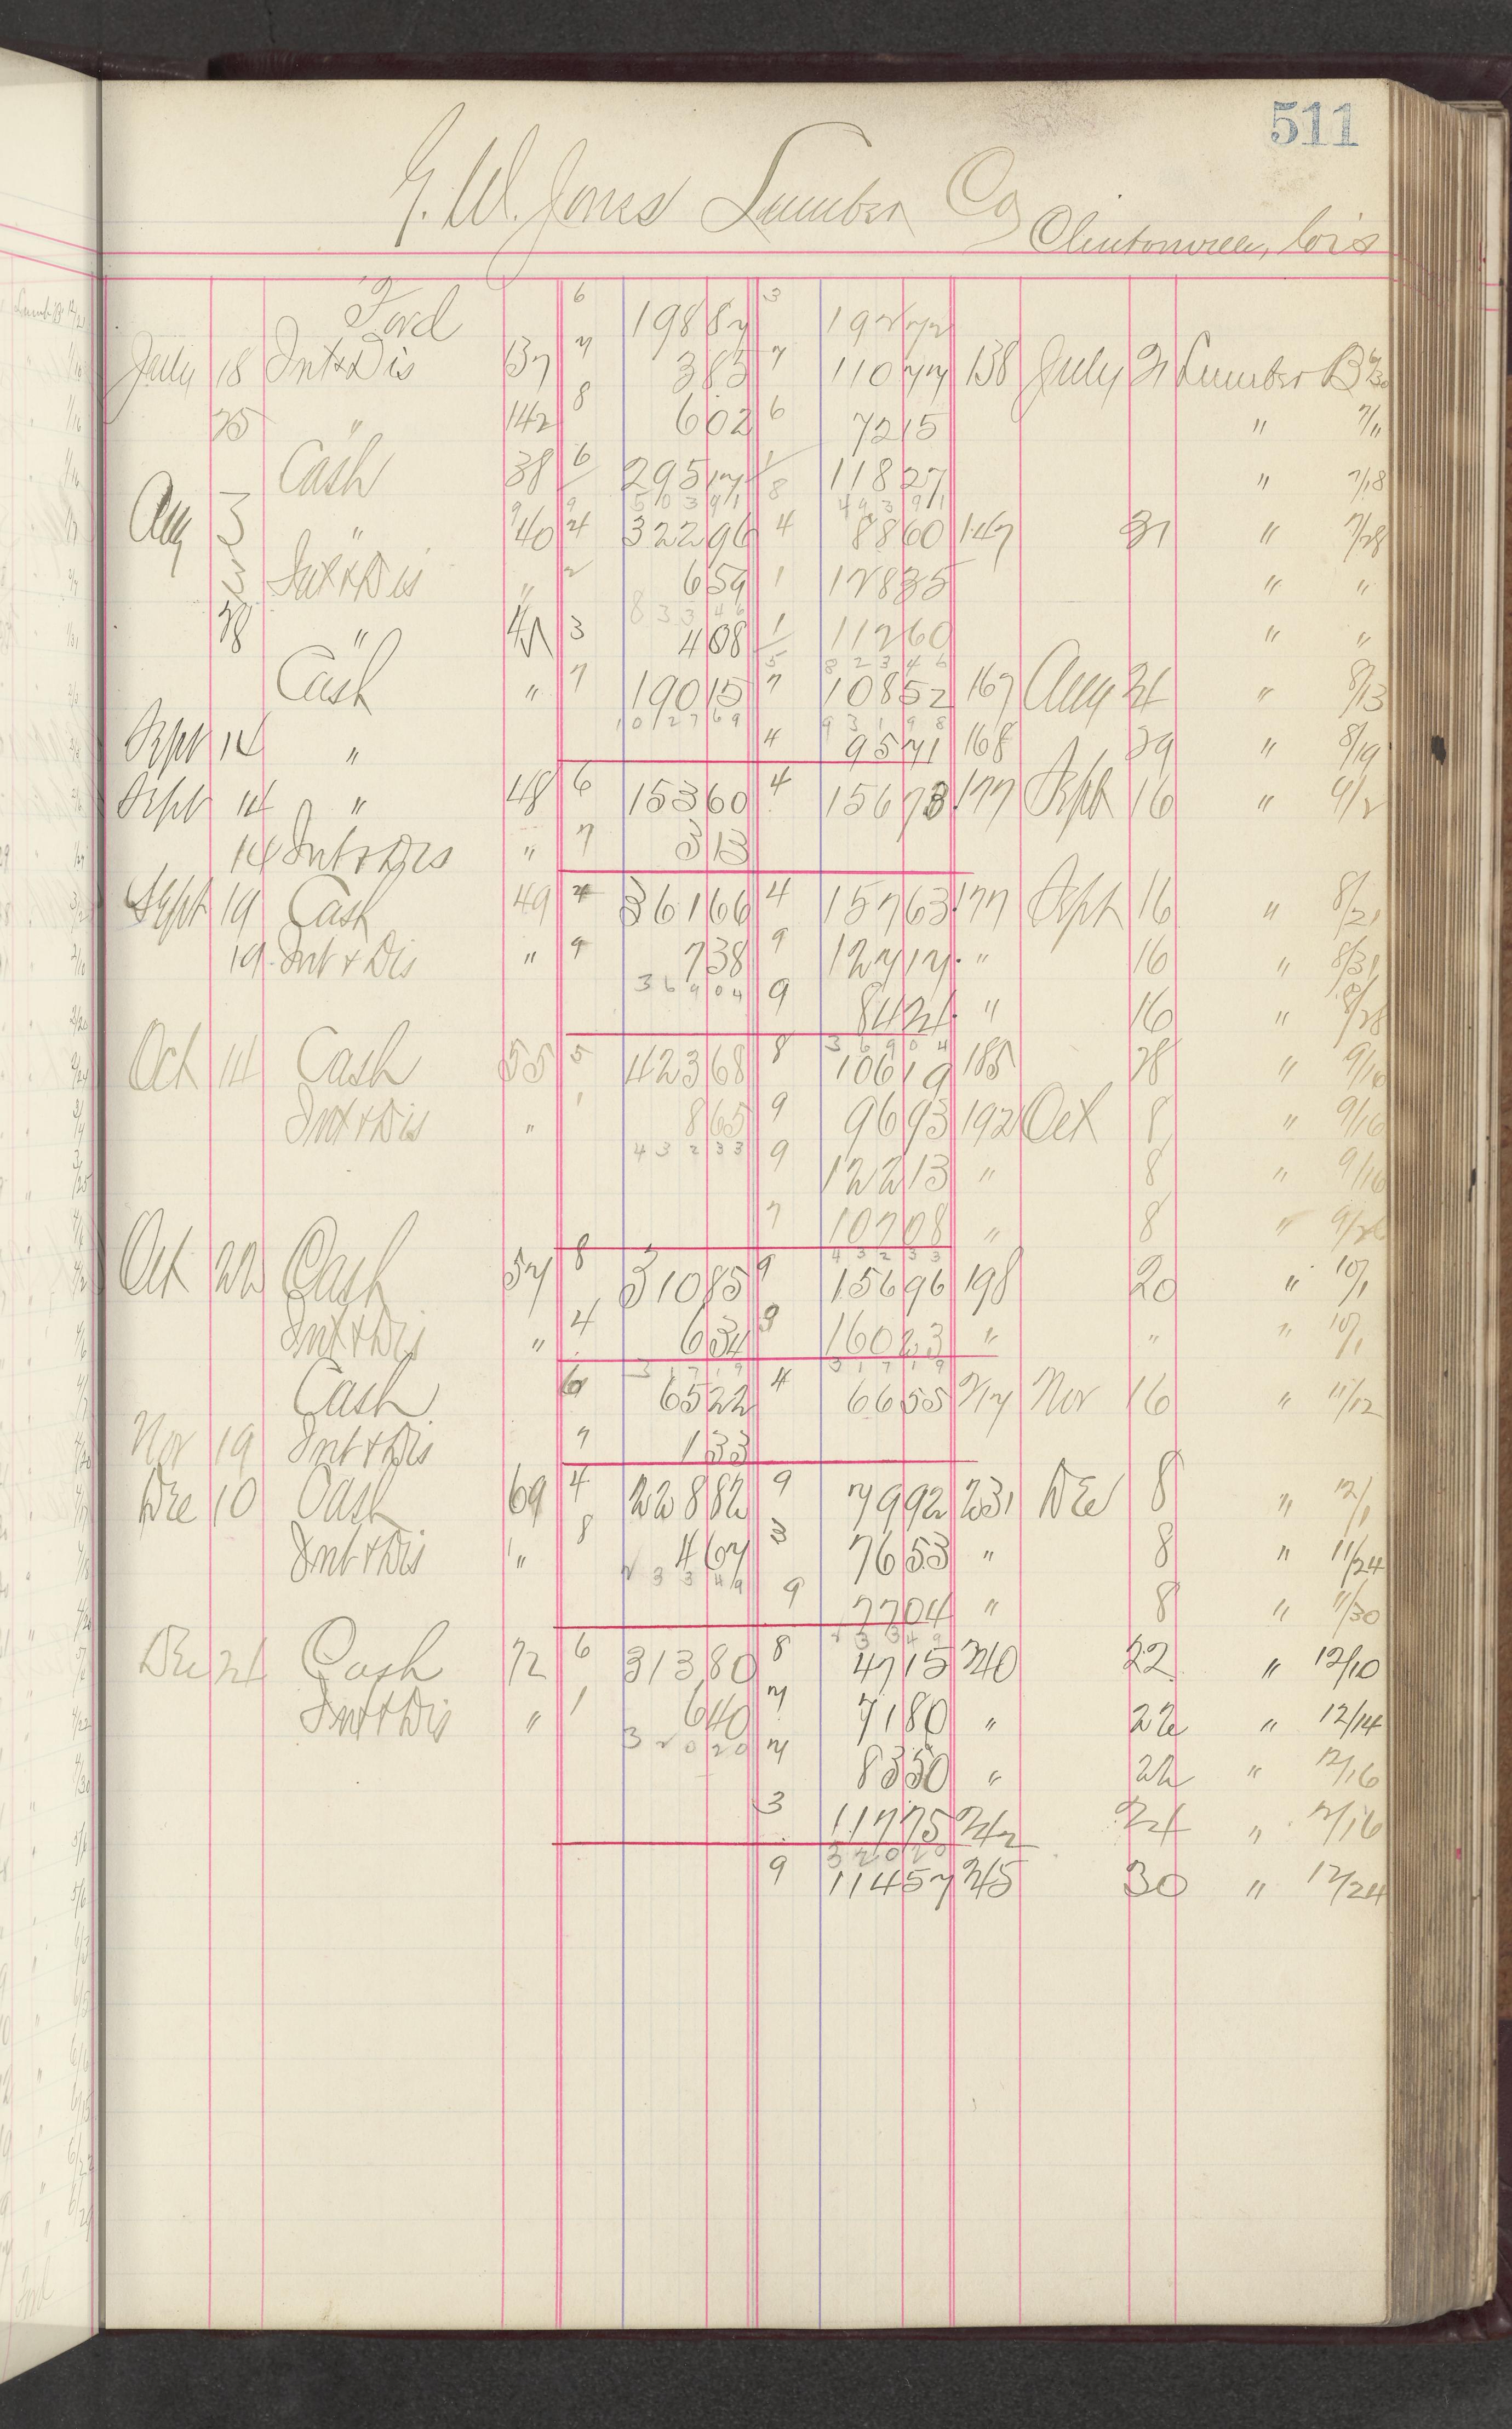 511
G. W. Jones Lumber Co
Clintonville, Wis
Ford 6 198 87 3 192 72
July 18 Int & Dis 137 7 3 83 7 110 77 138 July 21 Lumber B
25 " 142 8 6 02 6 72 15 " 7/11
Cash 38 6 295 17 1 118 27 " 7/18
9 510 3 91 8 493 91
Aug 3 " 40 4 322 96 4 88 60 147 31 " 7/28
3 Int & Dis " 2 6 59 1 128 35 " "
833 46
" 3 4 08 1 112 60 " "
5 823 46
Cash " 7 190 15 7 108 52 167 Aug 24 " 8/13
1027 69 931 98
Sept 14 " 4 95 71 168 29 " 8/19
Sept 14 " 48 6 153 60 4 156 73 177 Sept 16 " 9/2
14 Int & Dis " 7 3 13
Sept 19 Cash 49 4 361 66 4 157 63 177 Sept 16 " 8/21
19 Int & Dis " 9 7 38 9 127 17 " 16 " 8/31
369 04 9 84 24 " 16 " 8/28
369 04
Oct 14 Cash 55 5 423 68 8 106 19 185 28 " 9/10
Int & Dis " 1 8 65 9 96 93 192 Oct 8 " 9/16
432 33 9 122 13 " 8 " 9/16
7 107 08 " 8 " 9/26
432 33
Oct 22 Cash 57 8 310 85 9 156 96 198 20 " 10/1
Int & Dis " 4 6 34 3 160 23 " " " 10/1
317 19 317 19
Cash 6 65 22 4 66 55 217 Nov 16 " 11/12
Nov 19 Int & Dis 7 1 33
Dec 10 Cash 69 4 228 82 9 79 92 231 Dec 8 " 12/1
Int & Dis " 8 4 67 3 76 53 " 8 " 11/24
233 49 9 77 04 " 8 " 11/30
233 49
Dec 24 Cash 72 6 313 80 8 47 15 240 22 " 12/10
Int & Dis " 1 6 40 7 71 80 " 22 " 12/14
320 20 7 83 50 " 22 " 12/16
3 117 75 242 24 " 12/16
320 20
9 114 57 245 30 " 12/24